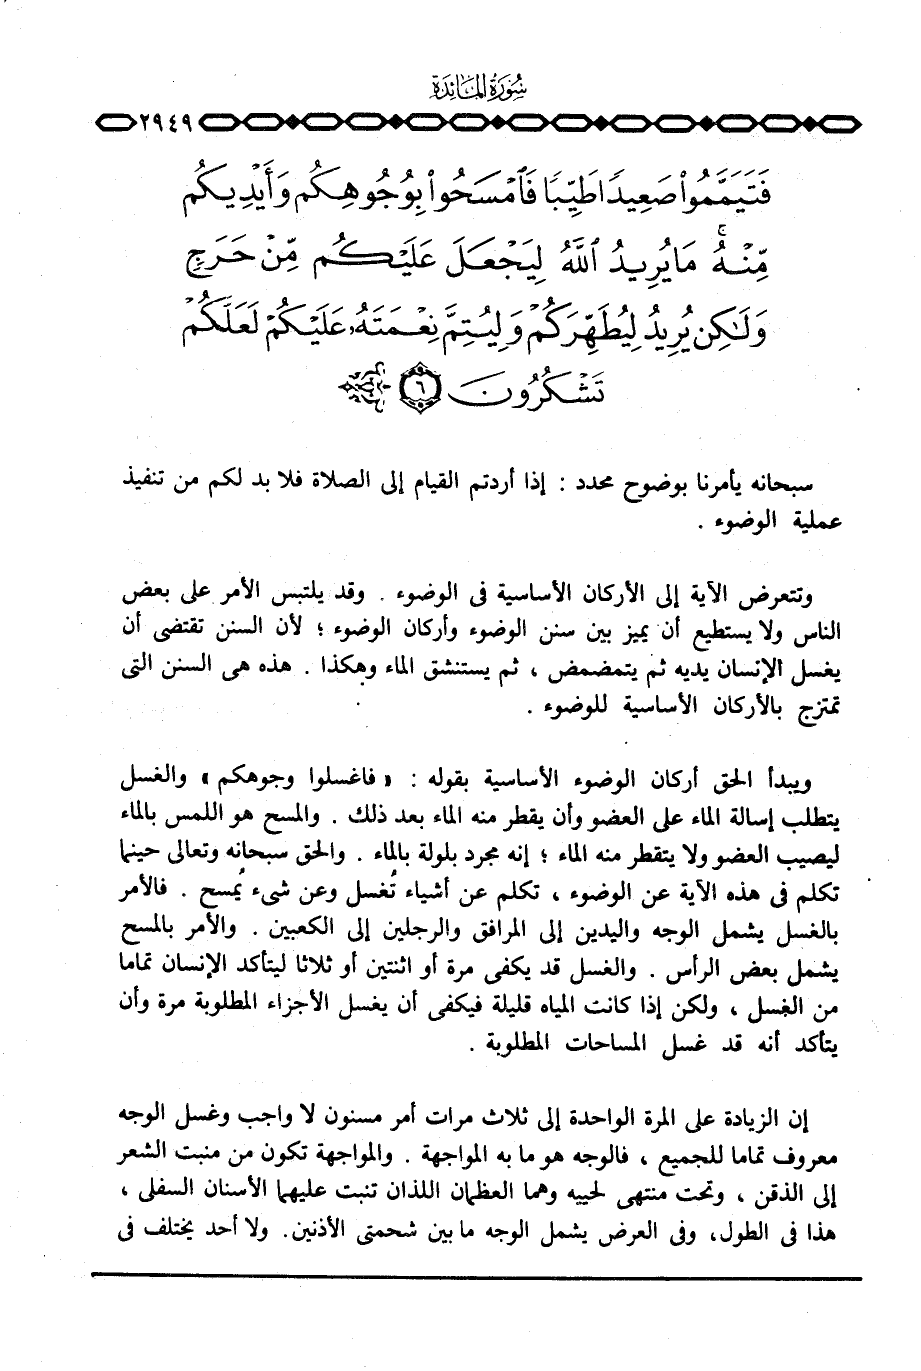 سُورَةُ المَائِدَةِ
٢٩٤٩
فَتَيَمَّمُوا۟ صَعِيدًا طَيِّبًا فَٱمْسَحُوا۟ بِوُجُوهِكُمْ وَأَيْدِيكُم
مِّنْهُ ۚ مَا يُرِيدُ ٱللَّهُ لِيَجْعَلَ عَلَيْكُم مِّنْ حَرَجٍ
وَلَـٰكِن يُرِيدُ لِيُطَهِّرَكُمْ وَلِيُتِمَّ نِعْمَتَهُۥ عَلَيْكُمْ لَعَلَّكُمْ
تَشْكُرُونَ ٦
سبحانه يأمرنا بوضوح محدد : إذا أردتم القيام إلى الصلاة فلا بد لكم من تنفيذ
عملية الوضوء .
وتتعرض الآية إلى الأركان الأساسية فى الوضوء . وقد يلتبس الأمر على بعض
الناس ولا يستطيع أن يميز بين سنن الوضوء وأركان الوضوء ؛ لأن السنن تقتضى أن
يغسل الإنسان يديه ثم يتمضمض ، ثم يستنشق الماء وهكذا . هذه هى السنن التى
تمتزج بالأركان الأساسية للوضوء .
ويبدأ الحق أركان الوضوء الأساسية بقوله : « فاغسلوا وجوهكم » والغسل
يتطلب إسالة الماء على العضو وأن يقطر منه الماء بعد ذلك . والمسح هو اللمس بالماء
ليصيب العضو ولا يتقطر منه الماء ؛ إنه مجرد بلولة بالماء . والحق سبحانه وتعالى حينما
تكلم فى هذه الآية عن الوضوء ، تكلم عن أشياء تُغسل وعن شىء يُمسح . فالأمر
بالغسل يشمل الوجه واليدين إلى المرافق والرجلين إلى الكعبين . والأمر بالمسح
يشمل بعض الرأس . والغسل قد يكفى مرة أو اثنتين أو ثلاثا ليتأكد الإنسان تماما
من الغسل ، ولكن إذا كانت المياه قليلة فيكفى أن يغسل الأجزاء المطلوبة مرة وأن
يتأكد أنه قد غسل المساحات المطلوبة .
إن الزيادة على المرة الواحدة إلى ثلاث مرات أمر مسنون لا واجب وغسل الوجه
معروف تماما للجميع ، فالوجه هو ما به المواجهة . والمواجهة تكون من منبت الشعر
إلى الذقن ، وتحت منتهى لحييه وهما العظمان اللذان تنبت عليهما الأسنان السفلى ،
هذا فى الطول، وفى العرض يشمل الوجه ما بين شحمتى الأذنين. ولا أحد يختلف فى